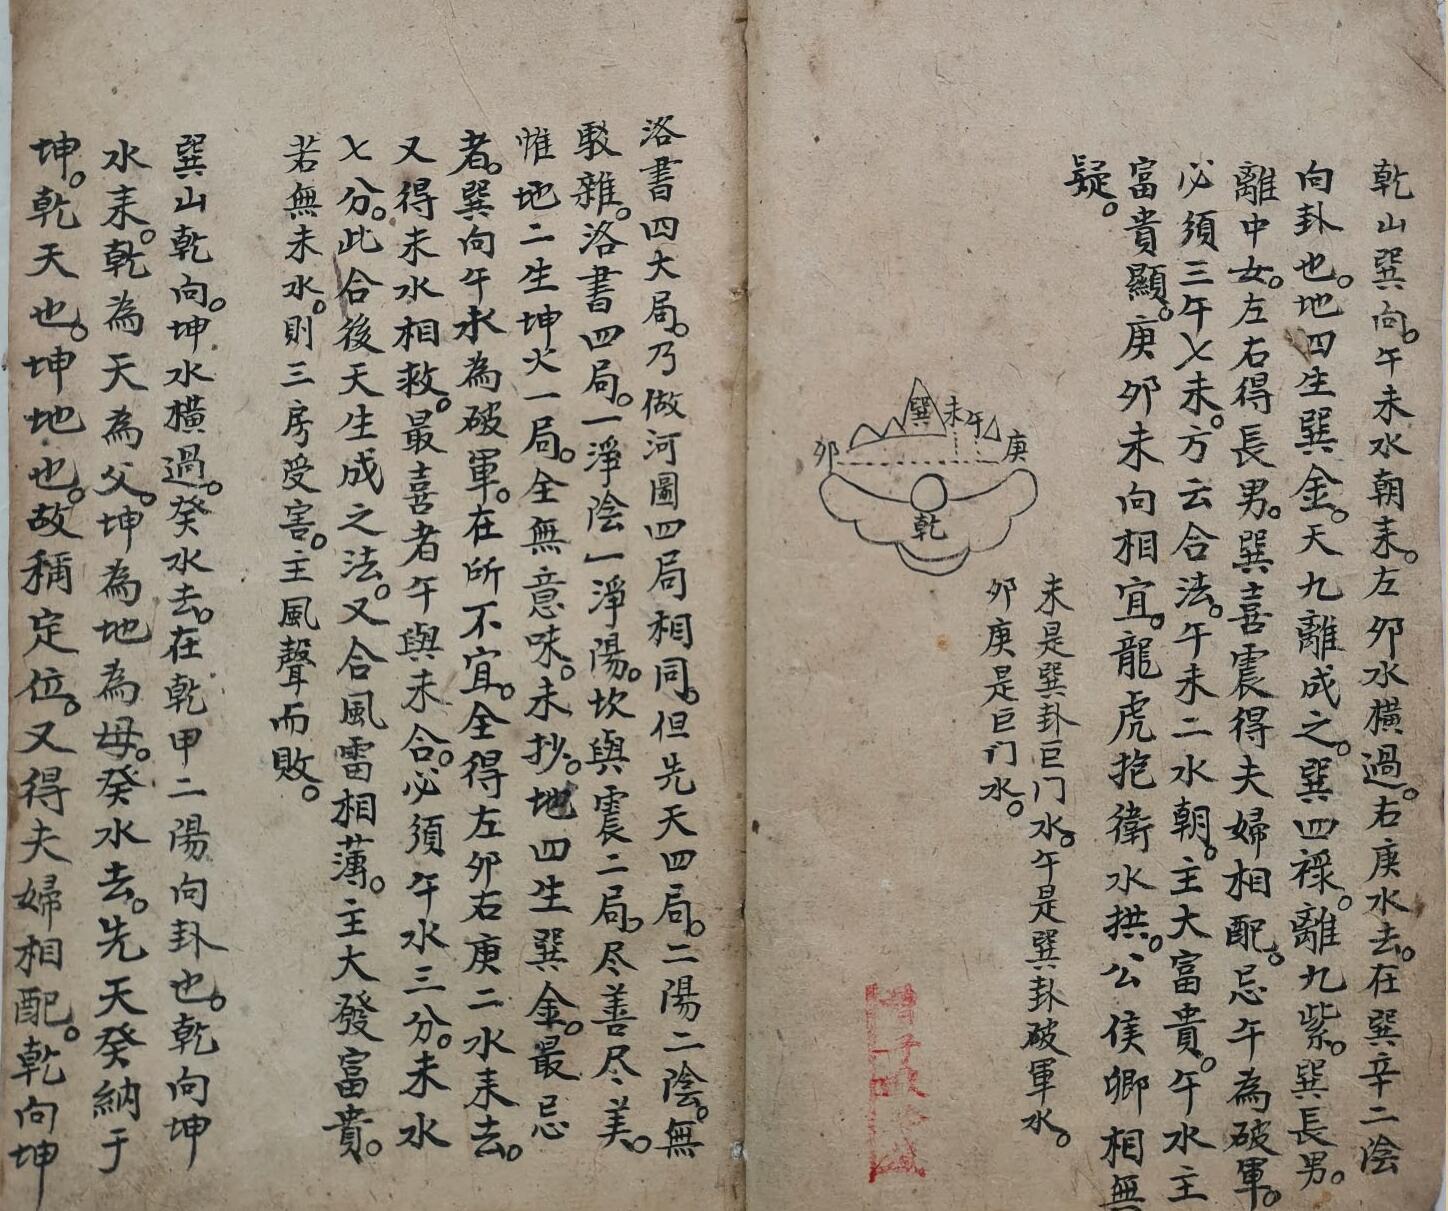 乾山巽向。午未水朝来。左夘水橫過。右庚水去。在巽辛二陰
向卦也。地四生巽金。天九離成之。巽四祿。離九紫。巽長男。
離中女。左右得長男。巽喜震得夫婦相配。忌午為破軍。
必須三午七未。方云合法。午未二水朝。主大富貴。午水主
富貴顯。庚夘未向相宜。龍虎抱衛水拱。公侯卿相無
疑。
巽
未
午
夘
庚
乾
未是巽卦巨门水。午是巽卦破軍水。
夘庚是巨门水。
洛書四大局。乃做河圖四局相同。但先天四局。二陽二陰。無
駁雜。洛書四局。一淨陰一淨陽。坎與震二局。尽善尽美。
惟地二生坤火一局。全無意味。未抄。地四生巽金。最忌
者。巽向午水為破軍。在所不宜。全得左夘右庚二水来去。
又得未水相救。最喜者午與未合。必須午水三分。未水
七分。此合後天生成之法。又合風雷相薄。主大發富貴。
若無未水。則三房受害。主風聲而敗。
巽山乾向。坤水橫過。癸水去。在乾甲二陽向卦也。乾向坤
水来。乾為天為父。坤為地為母。癸水去。先天癸納于
坤。乾天也。坤地也。故稱定位。又得夫婦相配。乾向坤